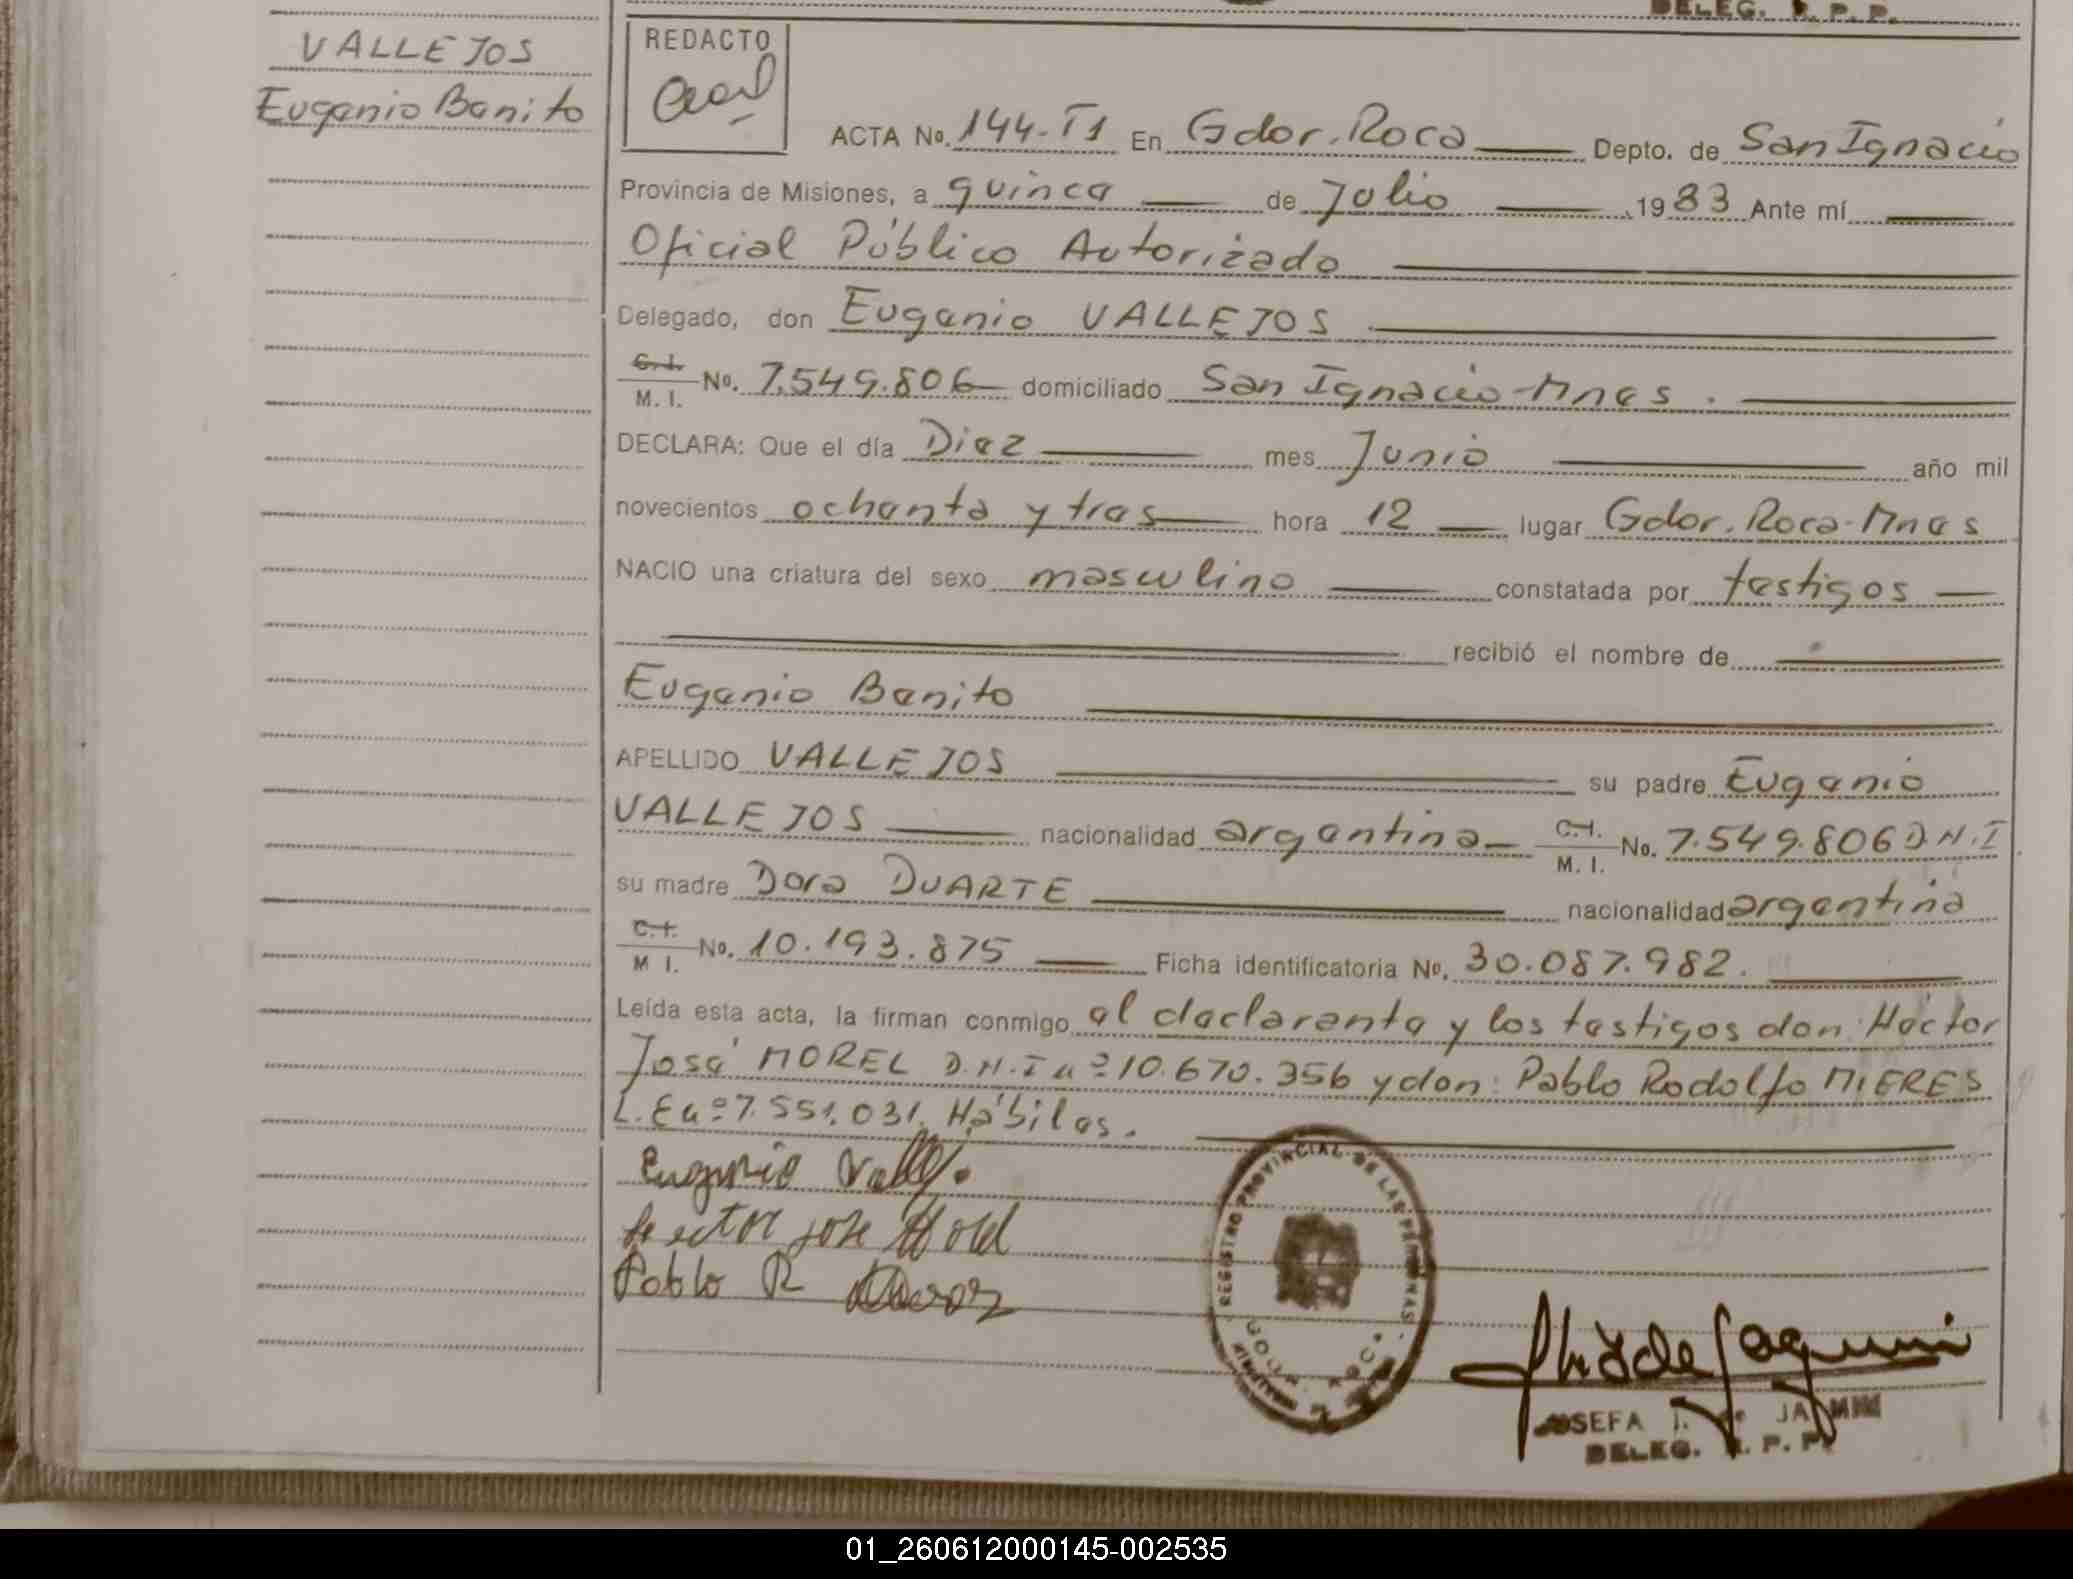 DELEG. R. P. P.
VALLEJOS
Eugenio Benito
REDACTO
ACTA No. 144-T1 En Gdor. Roca Depto. de San Ignacio
Provincia de Misiones, a quince de Julio 1983 Ante mí
Oficial Público Autorizado
Delegado, don Eugenio VALLEJOS
C.I. M. I. No. 7.549.806 domiciliado San Ignacio-Mnes.
DECLARA: Que el día Diez mes Junio año mil
novecientos ochenta y tres hora 12 lugar Gdor. Roca-Mnes
NACIO una criatura del sexo masculino constatada por testigos
recibió el nombre de
Eugenio Benito
APELLIDO VALLEJOS su padre Eugenio
VALLEJOS nacionalidad argentina C.I. M. I. No. 7.549.806 D.N.I
su madre Dora DUARTE nacionalidad argentina
C.I. M I. No. 10.193.875 Ficha identificatoria No. 30.087.982.
Leída esta acta, la firman conmigo el declarante y los testigos don: Héctor
José MOREL D.N.I nº 10.670.356 y don: Pablo Rodolfo MIERES
L.E nº 7.551.031. Hábiles.
Eugenio Vallejo
Hector Jose Morel
Pablo R
REGISTRO PROVINCIAL DE LAS PERSONAS
JOSEFA
DELEG. R. P. P.
01_260612000145-002535